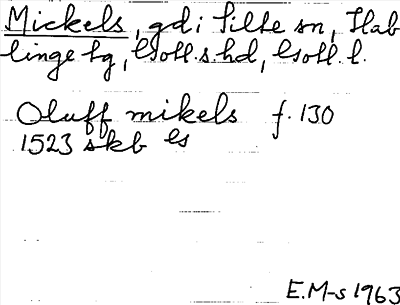 Mickels, gd i Silte sn, Hab
linge tg, Gotl. s. hd, Gotl. l.
Oluff mikels f. 130
1523 skb Gs
E.M-s 1963